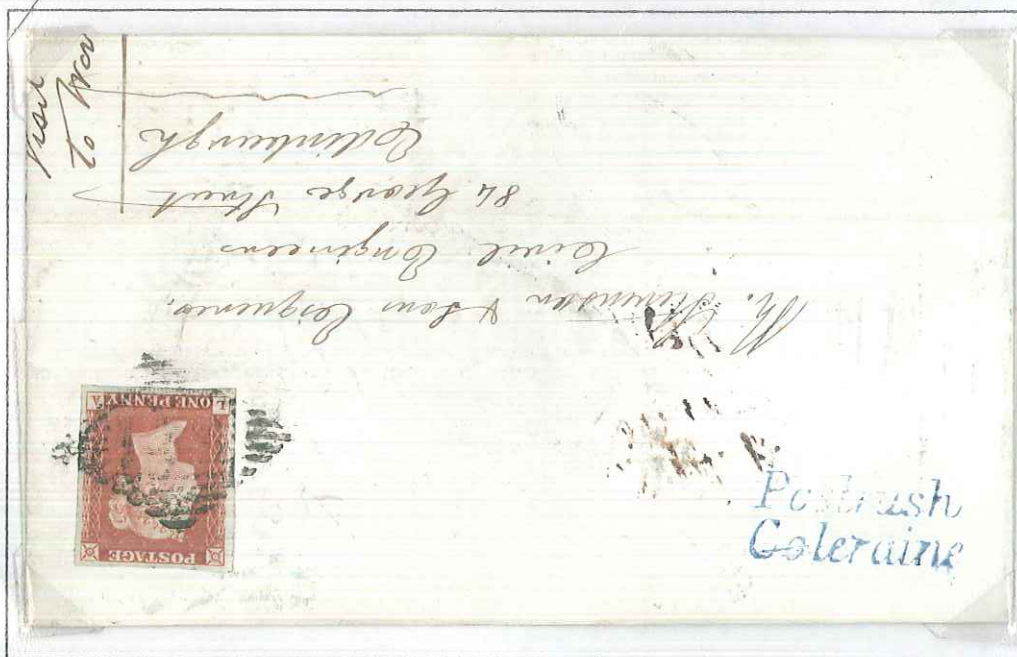 Visit
to Nov
M. Stevenson & Sons Esquires.
Civil Engineers
84 George Street
Edinburgh
POSTAGE
ONE PENNY
L A
Portrush
Coleraine